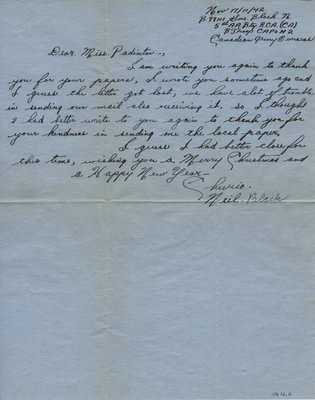 Nov 17/11/42
Black N.
5th AA Bty RCA (CA)
B Troop CAPO #2
Canadian Army Overseas
Dear Miss. Padinter,
I am writing you again to thank
you for your papers, I wrote you sometime ago and
I guess the letter got lost, we have alot of trouble
in sending our mail also receiving it, so I thought
I had better write to you again to thank you for
your kindness in sending me the local paper,
I guess I had better close for
this time, wishing you a Merry Christmas and
a Happy New Year-
Cheerio.
Neil. Black